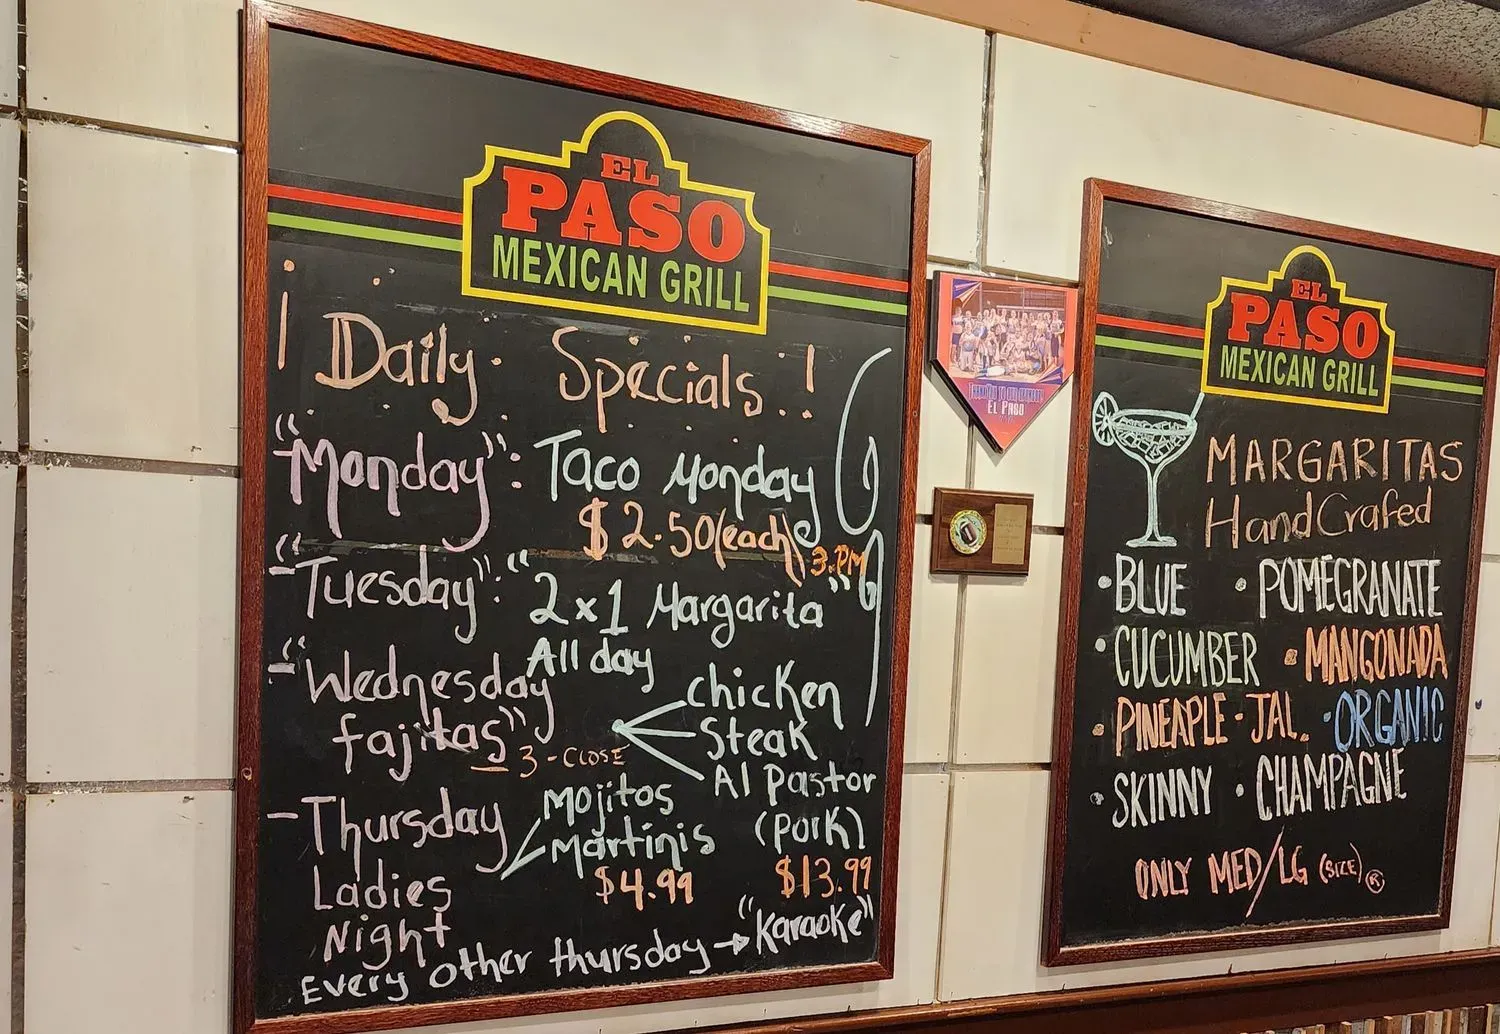 EL
PASO
MEXICAN GRILL
¡ Daily Specials !
"Monday": Taco Monday
$2.50 (each) 3.PM
-"Tuesday": "2x1 Margarita"
All day
-"Wednesday
fajitas" 3-CLOSE
chicken
Steak
Al Pastor
(Pork)
$13.99
-Thursday
Ladies
Night
Mojitos
Martinis
$4.99
Every other thursday → "Karaoke"
EL PASO
EL
PASO
MEXICAN GRILL
MARGARITAS
HandCrafed
•BLUE •POMEGRANATE
•CUCUMBER •MANGONADA
•PINEAPLE-JAL. •ORGANIC
•SKINNY •CHAMPAGNE
ONLY MED/LG (SIZE) ®